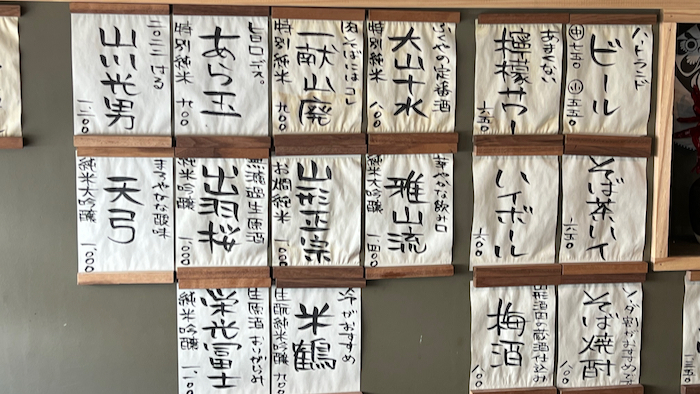 ハートランド
ビール
㊥七五〇 ㊙小五五〇
あまくない
檸檬サワー
六五〇
かくやの定番酒
大山十水
特別純米 八〇〇
肉そばにはコレ
一献山廃
特別純米 九〇〇
旨口デス。
あら玉
特別純米 九〇〇
二〇二三 はる
山川光男
一二〇〇
そば茶ハイ
六五〇
ハイボール
六〇〇
華やかな飲み口
雅山流
純米大吟醸 一四〇〇
山形正宗
お燗純米 一〇〇〇
無濾過生原酒
出羽桜
純米吟醸 一〇〇〇
まろやかな酸味
天弓
純米大吟醸 一〇〇〇
ソーダ割がおすすめです
そば焼酎
八〇〇
山形酒田の蔵酒仕込み
梅酒
八〇〇
今がおすすめ
米鶴
生酛純米吟醸 九〇〇
生原酒 おりがらみ
栄光冨士
純米吟醸 一〇〇〇